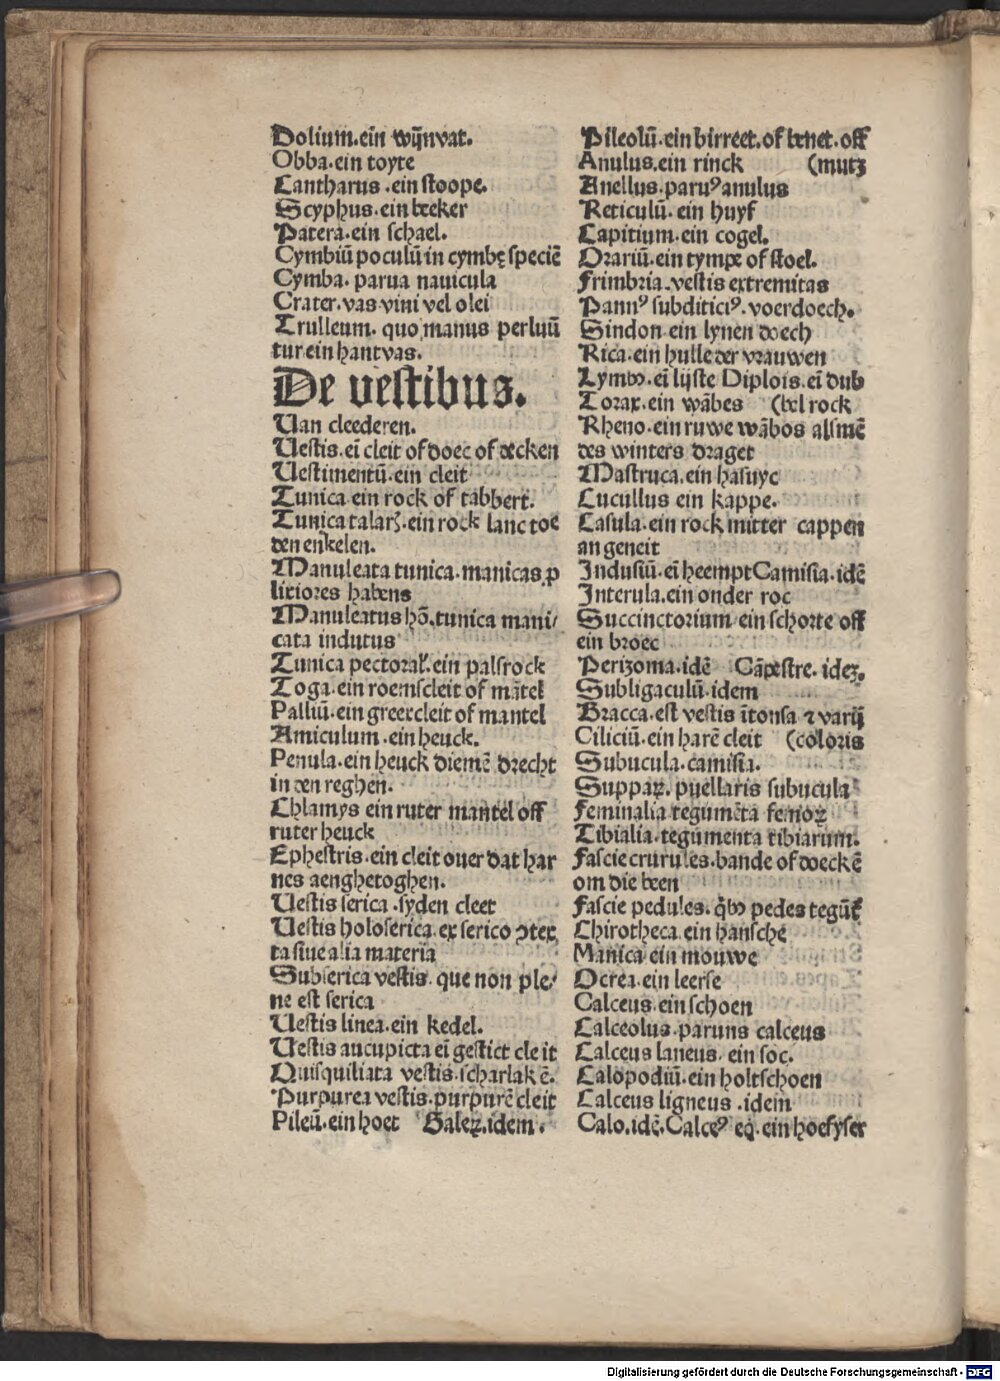 Dolium.ein wijnvat.
Obba.ein toyte
Cantharus.ein stoope.
Scyphus.ein beeker
Patera.ein schael.
Cymbiū poculū in cymbę speciē
Cymba. parua nauicula
Crater.vas vini vel olei
Trulleum. quo manus perluū
tur.ein hantvas.
De vestibus.
Uan cleederen.
Uestis.eī cleit of doec of decken
Uestimentū.ein cleit
Tunica ein rock of tabbert.
Tunica talarꝭ.ein rock lanc toe
den enkelen.
Manuleata tunica.manicas ꝓ
litiores habens
Manuleatus hō.tunica mani/
cata indutus
Tunica pectoral'.ein palsrock
Toga.ein roemscleit of mātel
Palliū.ein greexcleit of mantel
Amiculum.ein heuck.
Penula.ein heuck diemē drecht
in den reghen.
Chlamys ein ruter mantel off
ruter heuck
Ephestris.ein cleit ouer dat har
nes aenghetoghen.
Uestis serica.syden cleet
Uestis holoserica.ex serico ꝯtex
ta siue alia materia
Subserica vestis.que non ple/
ne est serica
Uestis linea.ein kedel.
Uestis aucupicta eī gestict cleit
Quisquiliata vestis.scharlakē.
Purpurea vestis.purpurē cleit
Pileū.ein hoet Galeꝝ.idem.
Pileolū.ein birreet.of benet.off
Anulus.ein rinck (mutz
Anellus.paruꝰ anulus
Reticulū.ein huyf
Capitium.ein cogel.
Orariū.ein tympe of stoel.
Frimbria.vestis extremitas
Pannꝰ subditiciꝰ.voerdoech.
Sindon ein lynen doech
Rica.ein hulle der vrauwen
Lymbꝰ.eī lijste Diplois.eī dub
Torax.ein wābes (bel rock
Rheno.ein ruwe wābos alsmē
des winters draget
Mastruca.ein hasuyc
Cucullus ein kappe.
Casula.ein rock mitter cappen
an geneit
Indusiū.eī heempt Camisia.idē
Interula.ein onder roc
Succinctorium ein schorte off
ein broec
Perizoma.idē Cāpestre.ideꝫ.
Subligaculū.idem
Bracca.est vestis ītonsa ⁊ varij
Ciliciū.ein harē cleit (coloris
Subucula.camisia.
Suppaꝝ. puellaris subucula
Feminalia tegumēta femoꝝ
Tibialia.tegumenta tibiarum.
Fascie crurules.bande of doeckē
om die been
Fascie pedules. q̄bꝰ pedes tegūt
Chirotheca.ein hansche
Manica ein mouwe
Ocrea.ein leerse
Calceus.ein schoen
Calceolus.paruus calceus
Calceus laneus. ein soc.
Calopodiū.ein holtschoen
Calceus ligneus.idem
Calo.idē.Calceꝰ eq̄.ein hoefyser
Digitalisierung gefördert durch die Deutsche Forschungsgemeinschaft - DFG